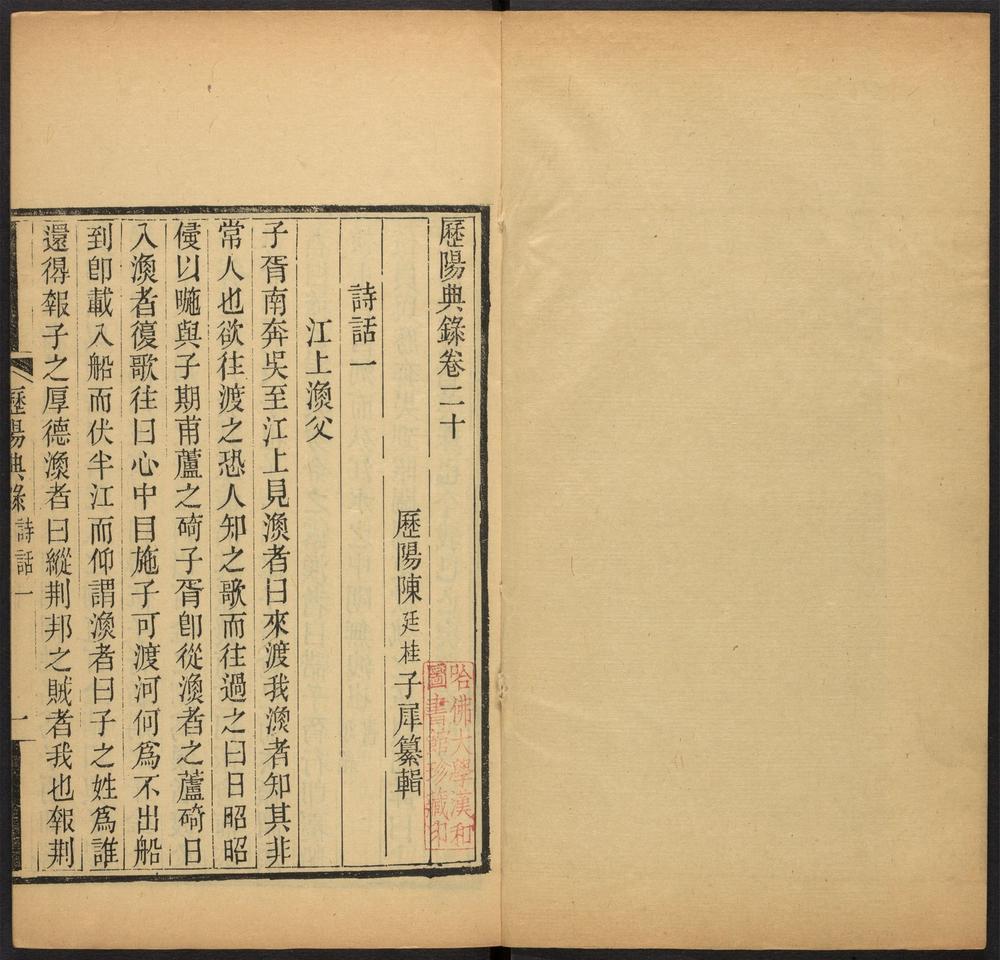 歷陽典錄卷二十
歷陽陳廷桂子犀纂輯
哈佛大學漢和
圖書館珍藏印
詩話一
江上漁父
子胥南奔吳至江上見漁者曰來渡我漁者知其非
常人也欲往渡之恐人知之歌而往過之曰日昭昭
侵以暆與子期甫蘆之碕子胥卽從漁者之蘆碕日
入漁者復歌往曰心中目施子可渡河何爲不出船
到卽載入船而伏半江而仰謂漁者曰子之姓爲誰
還得報子之厚德漁者曰縱荆邦之賊者我也報荆
歷陽典錄 詩話一 一